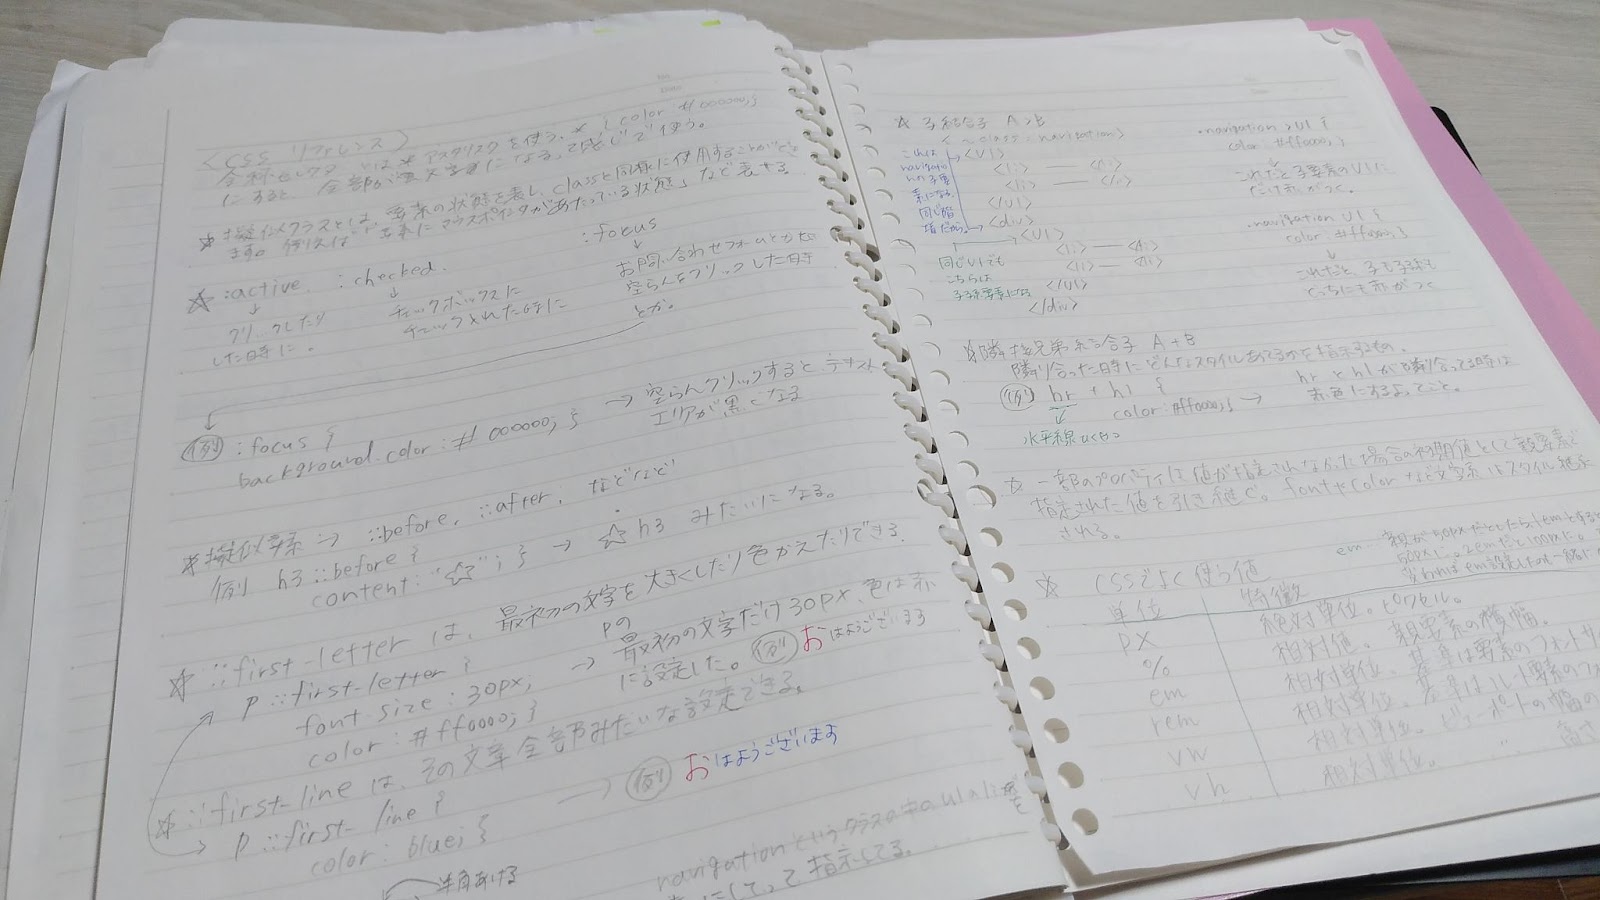 <CSS リファレンス>
全称セレクタとは * アスタリスクを使う。* { color: #000000; }
にすると、全部が黒文字になる、って感じで使う。
☆ 擬似クラスとは、要素の状態を表し、classと同様に使用することができ
ます。例えば「要素にマウスポインタがあたっている状態」など表せる
☆ :active, :checked.
:focus
↓
クリックしたり
した時に。
↓
チェックボックスに
チェックされた時に
↓
お問い合わせフォームとかで
空らんをクリックした時
とか。
例 :focus {
background color: # 000000; }
→ 空らんクリックすると、テキスト
エリアが黒くなる
☆擬似要素 → ::before, ::after, などなど
例 h3 ::before {
content: "☆"; } → ☆ h3 みたいになる。
☆ ::first-letter は、最初の文字を大きくしたり色かえたりできる.
p ::first-letter {
font size: 30px;
color: #ff0000; }
→ pの
最初の文字だけ30px、色は赤
に設定した。 例 おはようございます
☆ ::first-line は、その文章全部みたいな設定できる。
p ::first-line {
color: blue; }
→ 例 おはようございます
半角あける
navigationというクラスの中のul
指示してる。
☆ 子結合子 A > B
class: navigation>
これは
navigatio
nの子要
素になる.
同じ階
<ul>
<li> ― </li>
<li> ― </li>
</ul>
<div>
<ul>
<li> ― </li>
<li> ― </li>
</ul>
</div>
同じulでも
こちらは
子孫要素になる
.navigation > ul {
color: #ff0000; }
↓
これだと子要素のulに
だけ赤がつく。
.navigation ul {
color: #ff0000; }
↓
これだと、子も子孫も
どっちにも赤がつく
☆隣接兄弟結合子 A + B
隣り合った時にどんなスタイルあてるかを指示するもの。
例 hr + h1 {
color: #ff0000; } →
hr と h1 が隣り合ってる時は
赤色にするよってこと。
↓
水平線
☆ 一部のプロパティは値が指定されなかった場合の初期値として親要素で
指定された値を引き継ぐ。fontやcolorなど文字系はスタイル継承
される。
em
☆ CSSでよく使う値
単位 特徴
px 絶対単位。ピクセル。
% 相対値。親要素の横幅。
em 相対単位。基準は要素のフォントサ
rem 相対単位。基準はルート要素のフォ
vw 相対単位。ビューポートの幅の
vh 相対単位。 〃 高さ